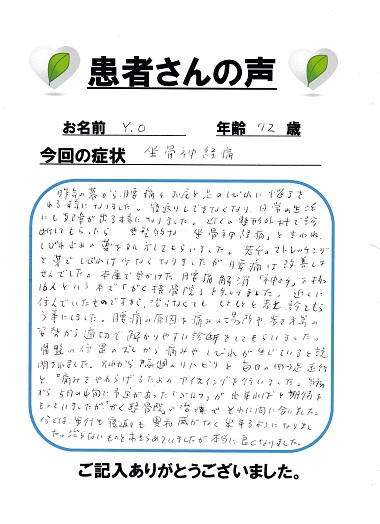 患者さんの声
お名前 Y.O 年齢 72 歳
今回の症状 坐骨神経痛
昨年の暮から、腰痛とお尻と足のしびれに悩まさ
れる様になりました。寝返りもできなくなり 日常の生活
にも支障が出る様になりました。近くの整形外科で診
断してもらったら 典型的な 坐骨神経痛」と言われ、
しびれ止めの薬を処方してもらいました。若干のストレッチング
と薬で しびれは少なくなりましたが 腰痛は改善しま
せんでした。本屋で見かけた 腰痛 解消「神の手」を持つ
16人という本で「がく接骨院」を知りました。近くに
住んでいたものですから、治らなくても もともと と思い診てもら
う事にしました。腰痛の原因を痛みの場所や歩き方等の
姿勢から適切で解かりやすい診断をしてもらいました。
骨盤の位置のズレから痛みやしびれが生じていると説
明されました。それから 週1回のリハビリと 毎日の 四つ足歩行
と 痛みをやわらげるための アイスイングを行いました。当初
から 5月の中旬に予定があった「ゴルフ」が出来ればと期待を
もっていましたが「がく接骨院」の治療で それに間に合いました。
今では、歩行も寝返りも 違和感がなく出来るようになりまし
た。治らないものとあきらめていましたが本当に良くなりました。
ご記入ありがとうございました。